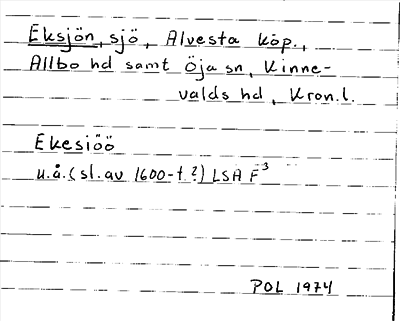 Eksjön, sjö, Alvesta köp.,
Allbo hd samt Öja sn, Kinne-
valds hd, Kron.l.
Ekesiöö
u.å. (sl. av 1600-t?) LSA F³
POL 1974